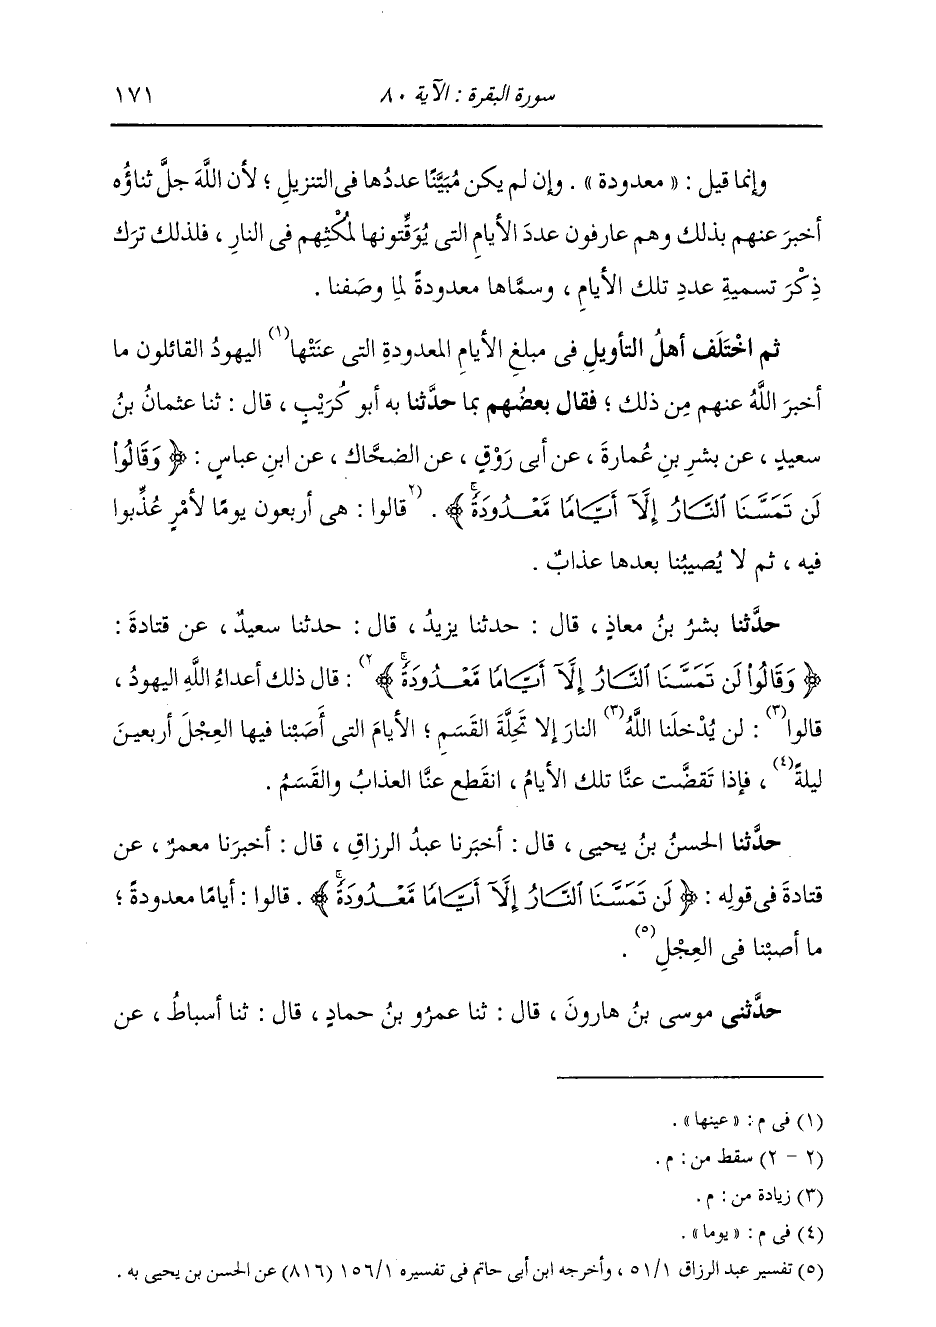 سورة البقرة : الآية ٨٠ ١٧١
وإنما قيل : « معدودة » . وإن لم يكن مُبَيَّنًا عددُها فى التنزيلِ ؛ لأن اللَّهَ جلَّ ثناؤُه
أخبرَ عنهم بذلك وهم عارفون عددَ الأيامِ التى يُوَقِّتونها لمُكْثِهم فى النارِ ، فلذلك ترَك
ذِكْرَ تسميةِ عددِ تلك الأيامِ ، وسمَّاها معدودةً لِما وصَفنا .
ثم اخْتَلَف أهلُ التأويلِ فى مبلغِ الأيامِ المعدودةِ التى عنَتْها(١) اليهودُ القائلون ما
أخبرَ اللَّهُ عنهم مِن ذلك ؛ فقال بعضُهم بما حدَّثنا به أبو كُرَيْبٍ ، قال : ثنا عثمانُ بنُ
سعيدٍ ، عن بشرِ بنِ عُمارةَ ، عن أبى رَوْقٍ ، عن الضحَّاك ، عن ابنِ عباسٍ : ﴿ وَقَالُواْ
لَن تَمَسَّنَا ٱلنَّارُ إِلَّآ أَيَّامًا مَّعْدُودَةً ﴾ . (٢قالوا : هى أربعون يومًا لأمْرٍ عُذِّبوا
فيه ، ثم لا يُصيبُنا بعدها عذابٌ .
حدَّثنا بشرُ بنُ معاذٍ ، قال : حدثنا يزيدُ ، قال : حدثنا سعيدٌ ، عن قتادةَ :
﴿ وَقَالُواْ لَن تَمَسَّنَا ٱلنَّارُ إِلَّآ أَيَّامًا مَّعْدُودَةً ﴾٢) : قال ذلك أعداءُ اللَّهِ اليهودُ ،
قالوا(٣) : لن يُدْخلَنا اللَّهُ(٣) النارَ إلا تَحِلَّةَ القَسَمِ ؛ الأيامَ التى أَصَبْنا فيها العِجْلَ أربعينَ
ليلةً(٤) ، فإذا تَقَضَّت عنَّا تلك الأيامُ ، انقَطع عنَّا العذابُ والقَسَمُ .
حدَّثنا الحسنُ بنُ يحيى ، قال : أخبَرنا عبدُ الرزاقِ ، قال : أخبرَنا معمرٌ ، عن
قتادةَ فى قولِه : ﴿ لَن تَمَسَّنَا ٱلنَّارُ إِلَّآ أَيَّامًا مَّعْدُودَةً ﴾ . قالوا : أيامًا معدودةً ؛
ما أصبْنا فى العِجْلِ(٥) .
حدَّثنى موسى بنُ هارونَ ، قال : ثنا عمرُو بنُ حمادٍ ، قال : ثنا أسباطُ ، عن
(١) فى م : « عينها » .
(٢ - ٢) سقط من : م .
(٣) زيادة من : م .
(٤) فى م : « يوما » .
(٥) تفسير عبد الرزاق ٥١/١ ، وأخرجه ابن أبى حاتم فى تفسيره ١٥٦/١ (٨١٦) عن الحسن بن يحيى به .